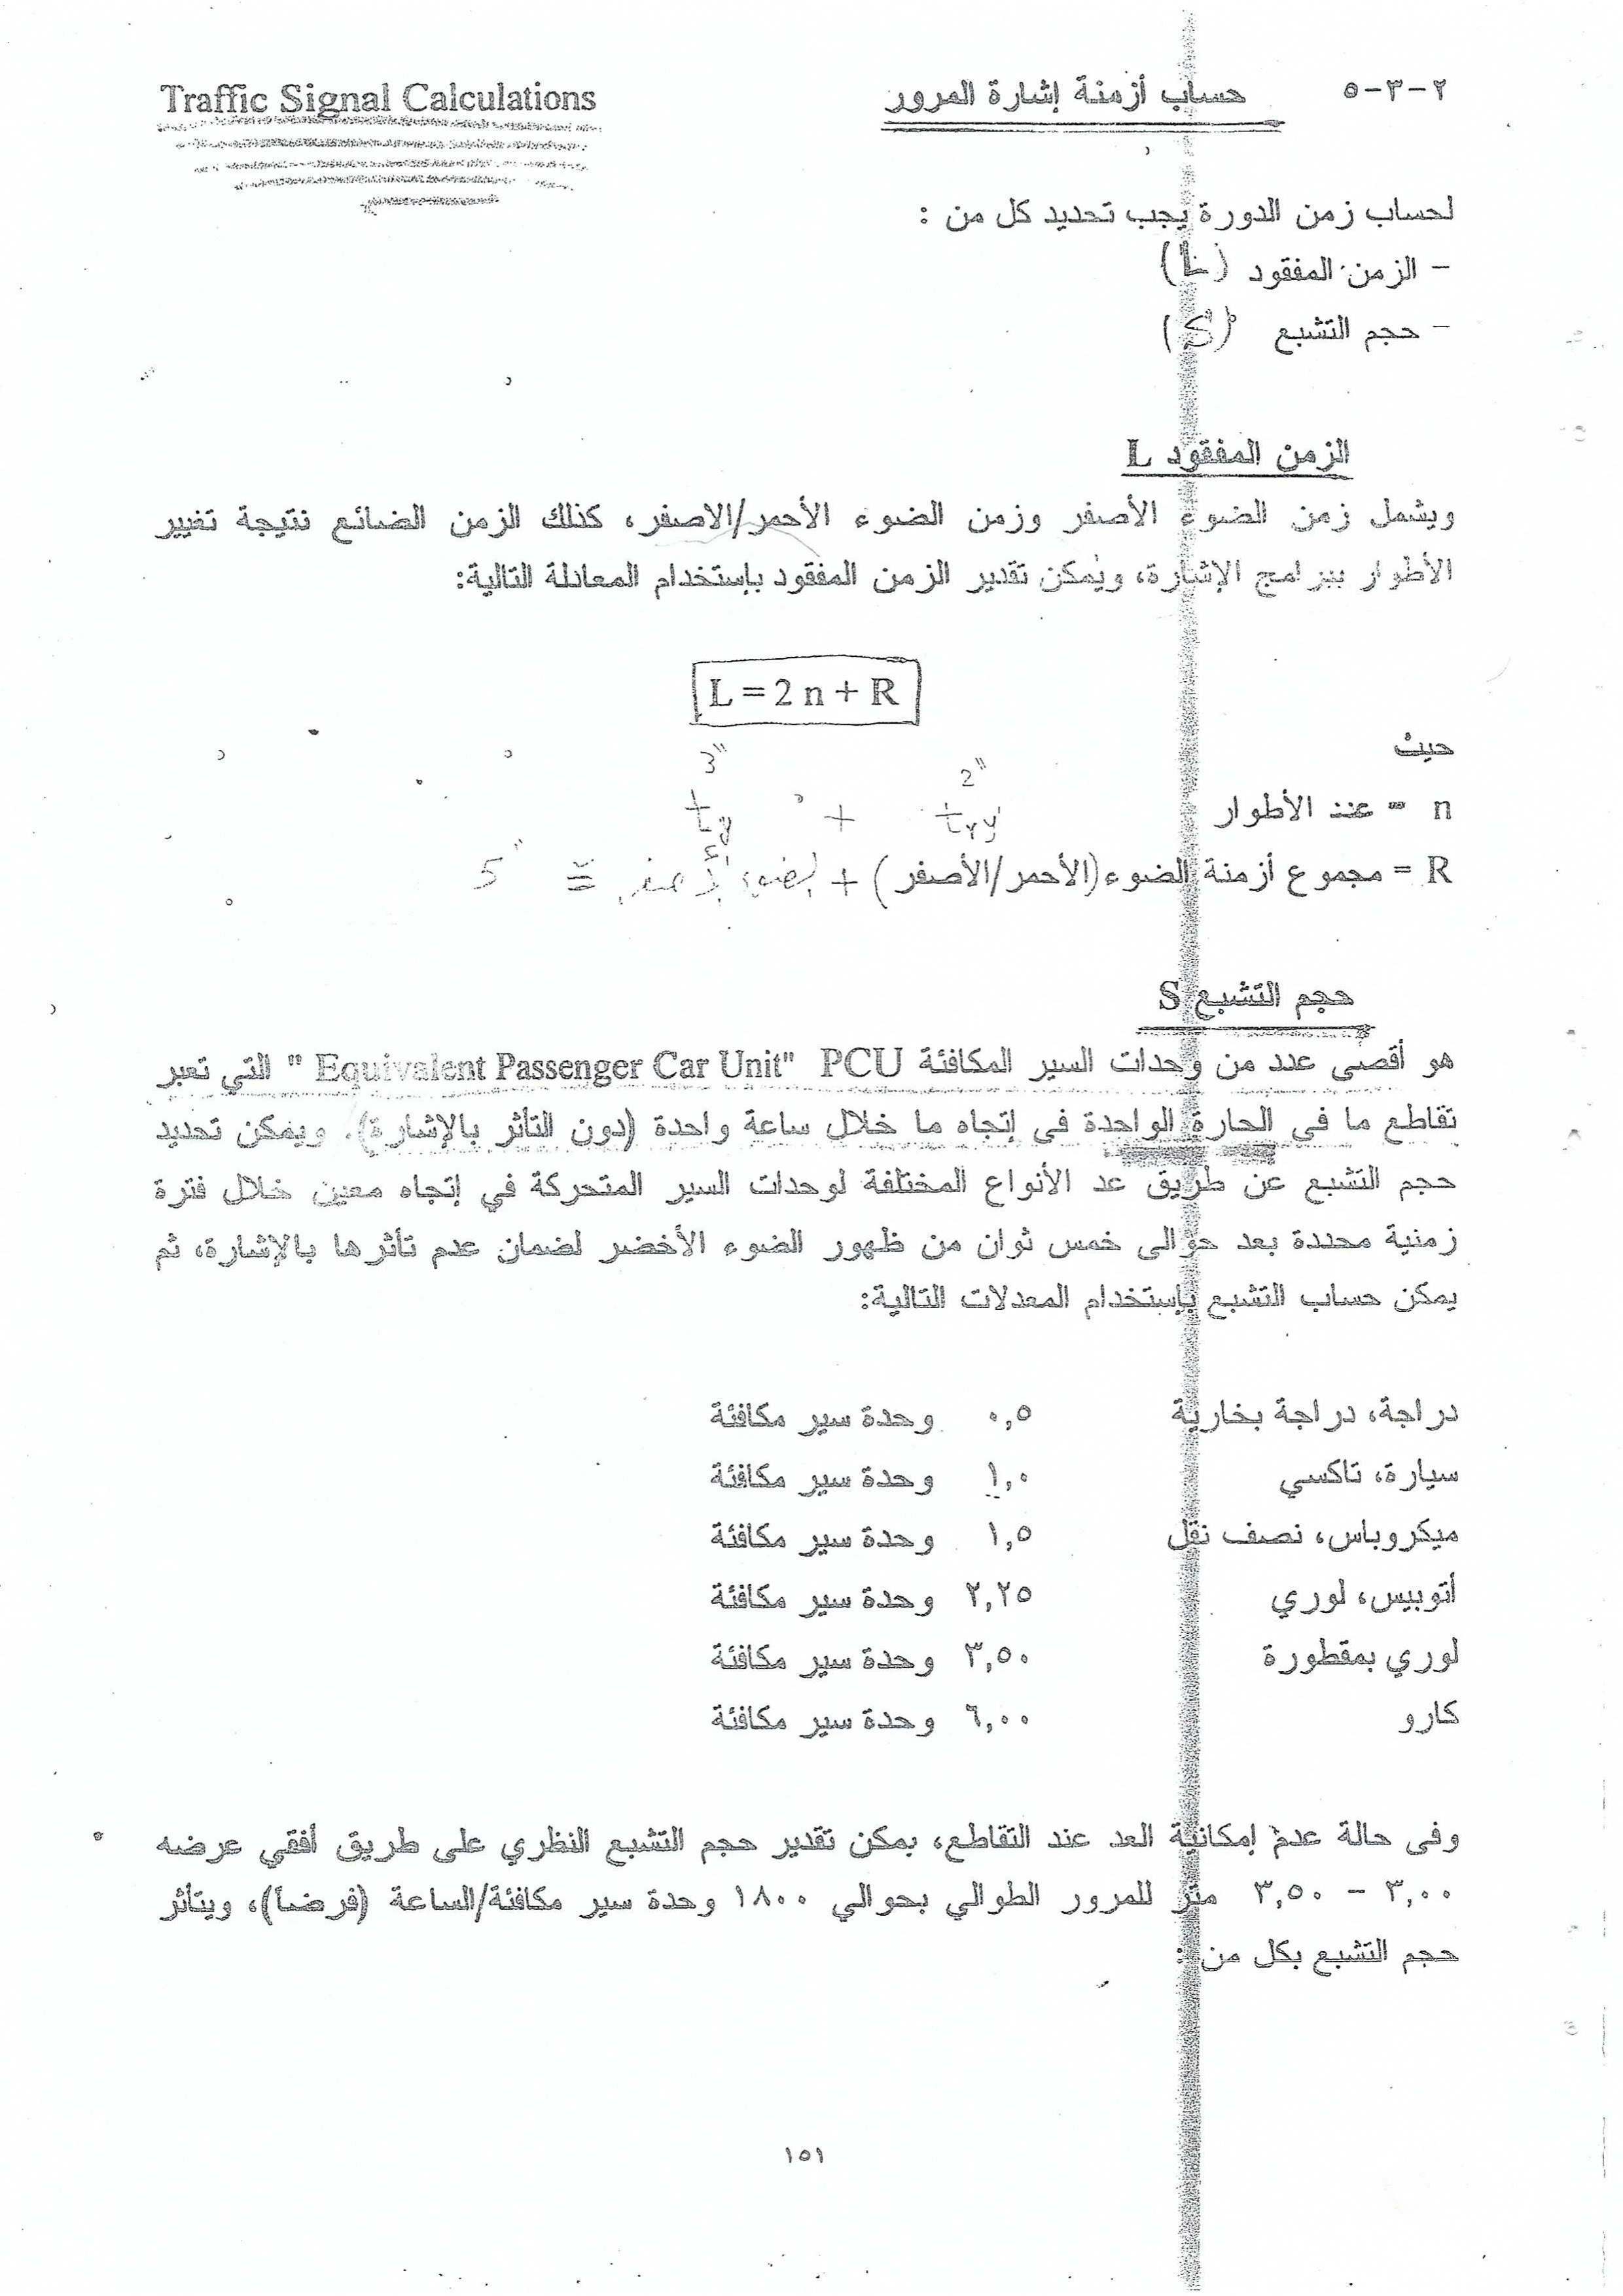 ٢-٣-٥ حساب أزمنة إشارة المرور Traffic Signal Calculations
لحساب زمن الدورة يجب تحديد كل من :
- الزمن المفقود (L)
- حجم التشبع (S)
الزمن المفقود L
ويشمل زمن الضوء الأصفر وزمن الضوء الأحمر/الاصفر، كذلك الزمن الضائع نتيجة تغيير
الأطوار ببرامج الإشارة، ويمكن تقدير الزمن المفقود بإستخدام المعادلة التالية:
L = 2 n + R
حيث
3" 2"
n = عدد الأطوار
ty + try
R = مجموع أزمنة الضوء (الأحمر/الأصفر) + الضوء الأصفر = 5"
حجم التشبع S
هو أقصى عدد من وحدات السير المكافئة PCU "Equivalent Passenger Car Unit" التي تعبر
تقاطع ما في الحارة الواحدة في إتجاه ما خلال ساعة واحدة (دون التأثر بالإشارة). ويمكن تحديد
حجم التشبع عن طريق عد الأنواع المختلفة لوحدات السير المتحركة في إتجاه معين خلال فترة
زمنية محددة بعد حوالى خمس ثوان من ظهور الضوء الأخضر لضمان عدم تأثرها بالإشارة، ثم
يمكن حساب التشبع بإستخدام المعدلات التالية:
دراجة، دراجة بخارية ٠,٥ وحدة سير مكافئة
سيارة، تاكسي ١,٠ وحدة سير مكافئة
ميكروباس، نصف نقل ١,٥ وحدة سير مكافئة
أتوبيس، لوري ٢,٢٥ وحدة سير مكافئة
لوري بمقطورة ٣,٥٠ وحدة سير مكافئة
كارو ٦,٠٠ وحدة سير مكافئة
وفى حالة عدم إمكانية العد عند التقاطع، يمكن تقدير حجم التشبع النظري على طريق أفقي عرضه
٣,٠٠ - ٣,٥٠ متر للمرور الطوالي بحوالي ١٨٠٠ وحدة سير مكافئة/الساعة (فرضاً)، ويتأثر
حجم التشبع بكل من :
١٥١